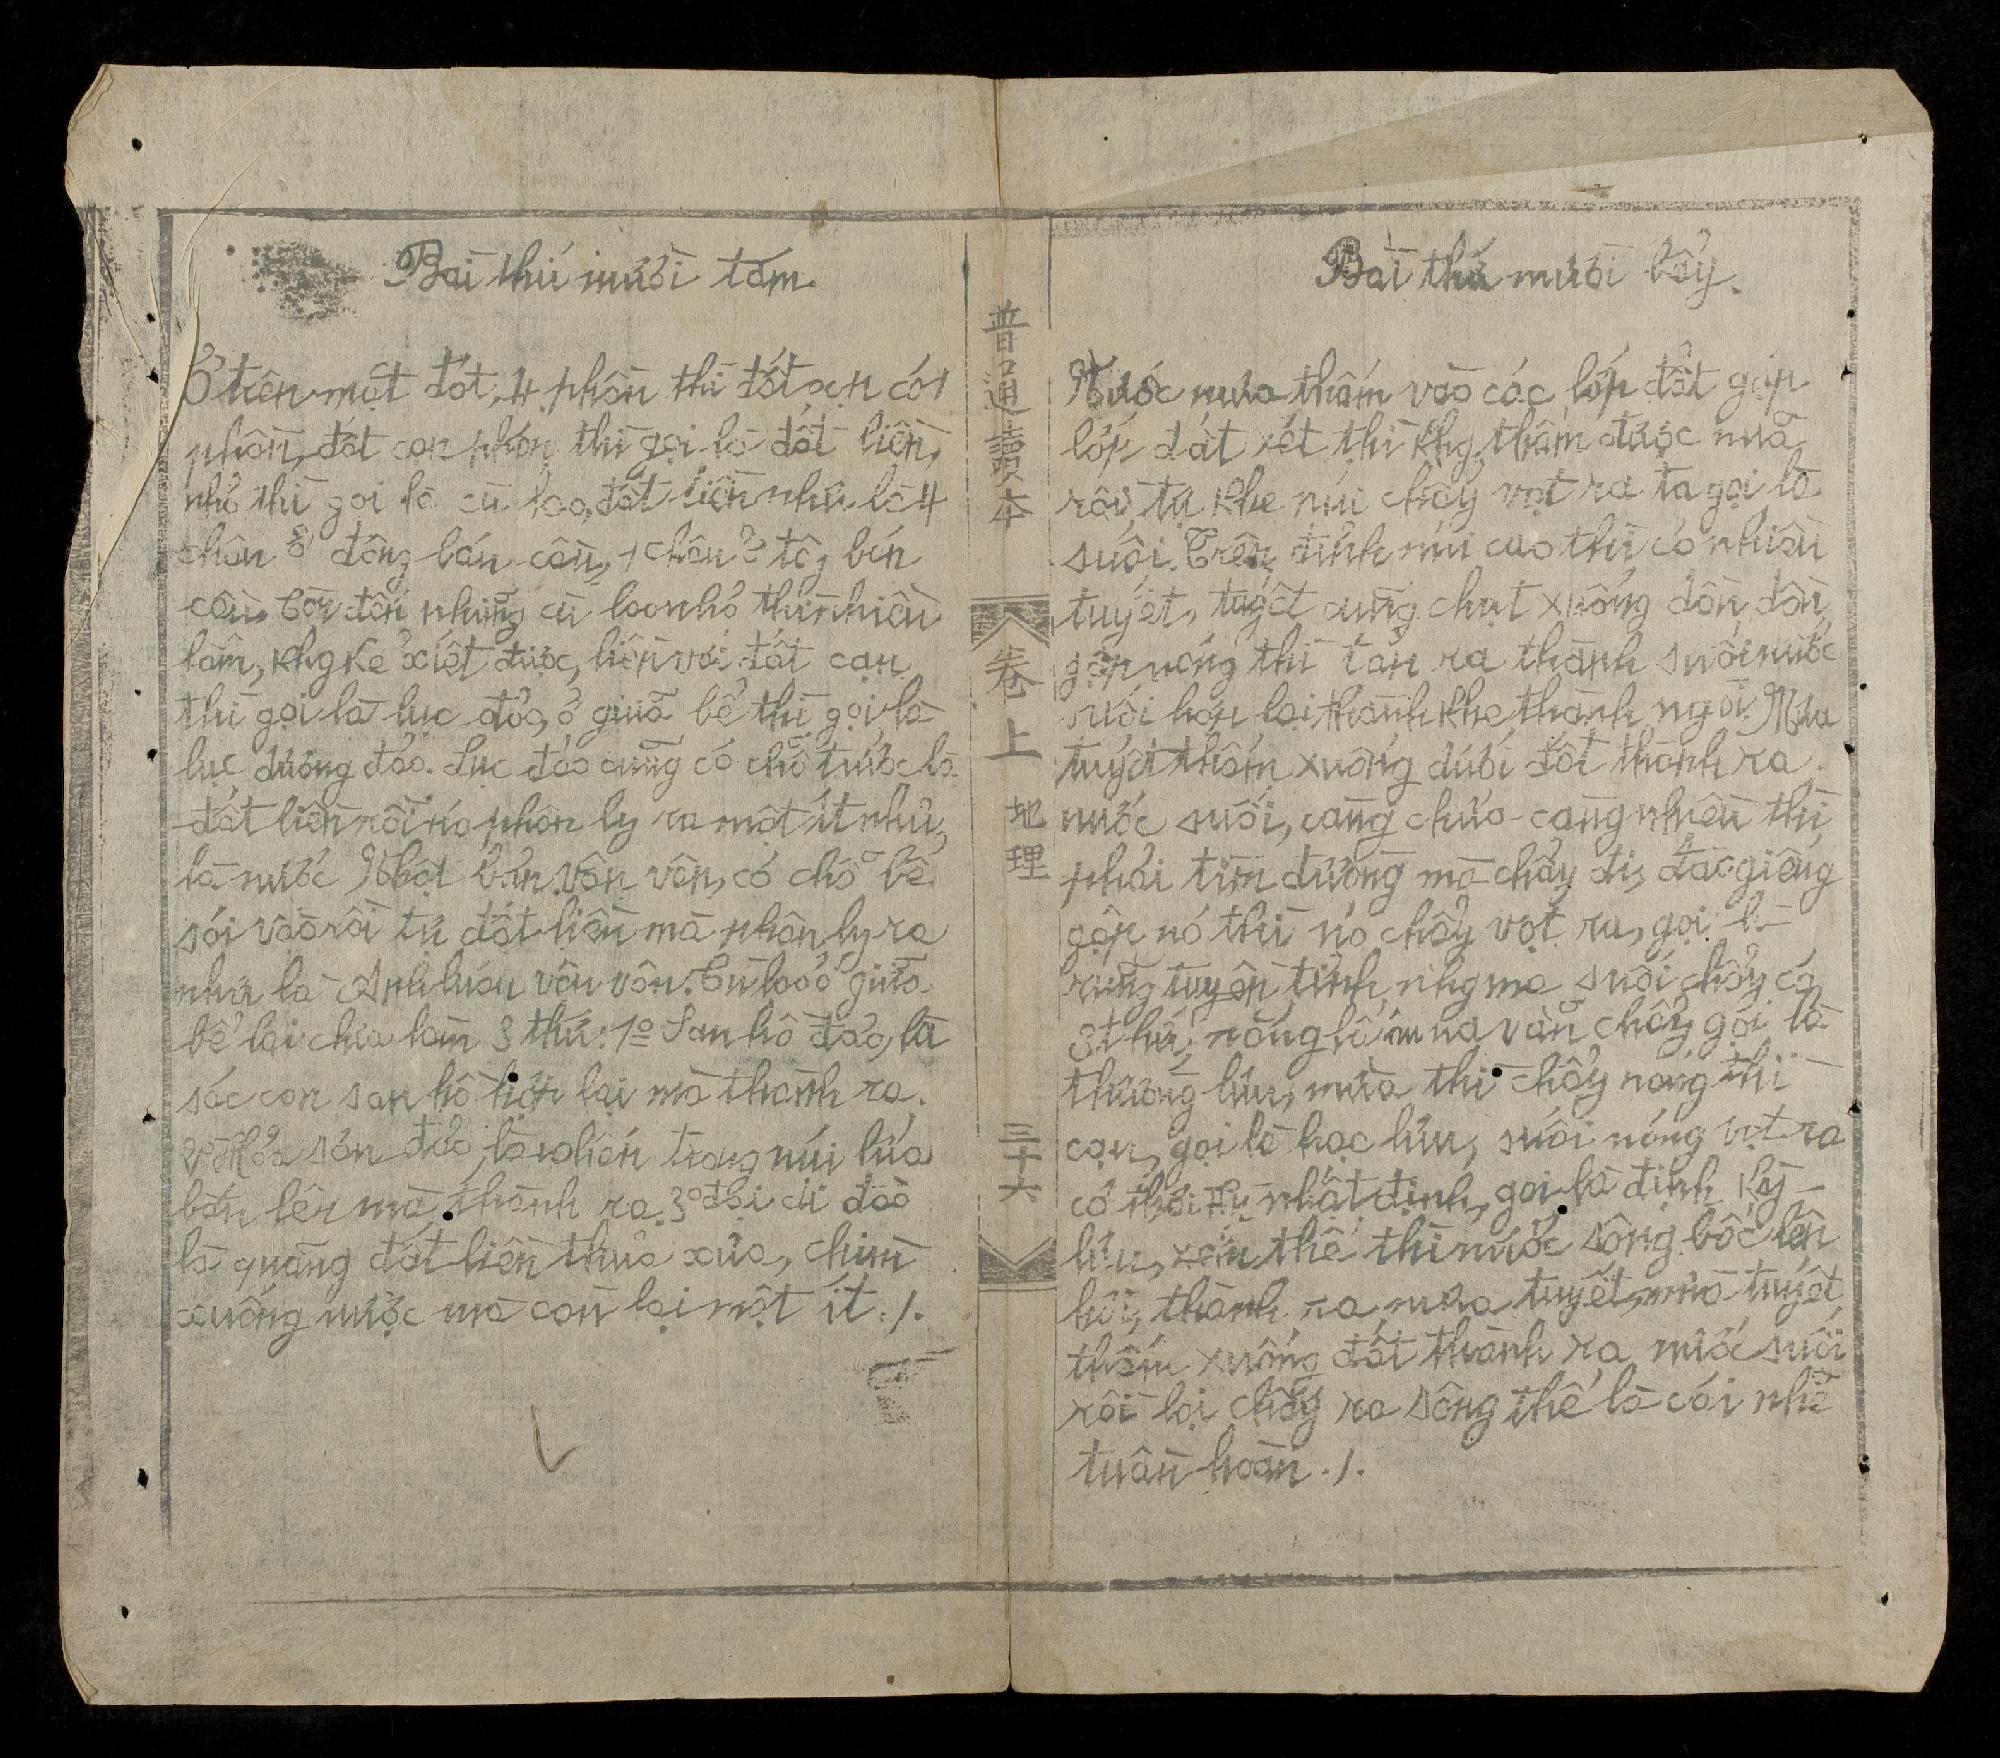 Bài thứ mười bảy.
Nước mưa thấm vào các lớp đất gặp
lớp đất sét thì khg thấm được nưã,
rồi tự khe núi chẩy vọt ra ta gọi là
suối. Trên đỉnh núi cao thì có nhiều
tuyết, tuyết cũng chụt xuống dồn dồn,
gặp nóng thì tan ra thành suối nước
suối hợp lại thành khe thành ngòi Mưa
tuyết thấm xuống dưới đất thành ra
nước suối, càng chứa càng nhiều thì
phải tìm đường mà chẩy đi, đào giếng
gặp nó thì nó chẩy vọt ra, gọi là
tuyền tỉnh, nhg mà suối chẩy có
3 thứ, nắng vẫn chẩy gọi là
thường lưu, mưa thì chẩy nắng thì
cạn, gọi là hạc lưu, suối nóng vọt ra
có thời kỳ nhất định, gọi là định kỳ
lưu, xem thế thì nước sông bốc lên
hơi, thành ra mưa tuyết, mưa tuyết
thấm xuống đất thành ra nước suối
rồi lại chẩy ra sông thế là cái nhẽ
tuần hoàn ./.
普通讀本
卷上
地理
三十六
Bài thứ mười tám.
Ở trên mặt đất, 4 phần thì đất cạn có 1
phần, đất cạn thì gọi là đất liền,
nhỏ thì gọi là cù lao, đất liền như là 4
châu ở đông bán cầu, 1 châu ở tây bán
cầu. Còn đến nhưng cù lao nhỏ thì nhiều
lắm, khg kể xiết được, liền với đất cạn
thì gọi là lục đảo, ở giưã bể thì gọi là
lục dương đảo. Lục đảo cũng có chỗ trước là
đất liền rồi nó phân ly ra một ít như,
là nước Nhật bản vân vân, có chỗ bể
sói vào rồi từ đất liền mà phân ly ra
như là Anh luân vân vân. Cù lao ở giưã
bể lại chia làm 3 thứ: 1º San hô đảo, là
sác con san hô hợp lại mà thành ra.
2º Hỏa sơn đảo, là chiên trong núi lửa
bắn lên mà thành ra. 3º đại di đảo
là quãng đất liền thuả xưa, chìm
xuống nước mà còn lại một ít ./.